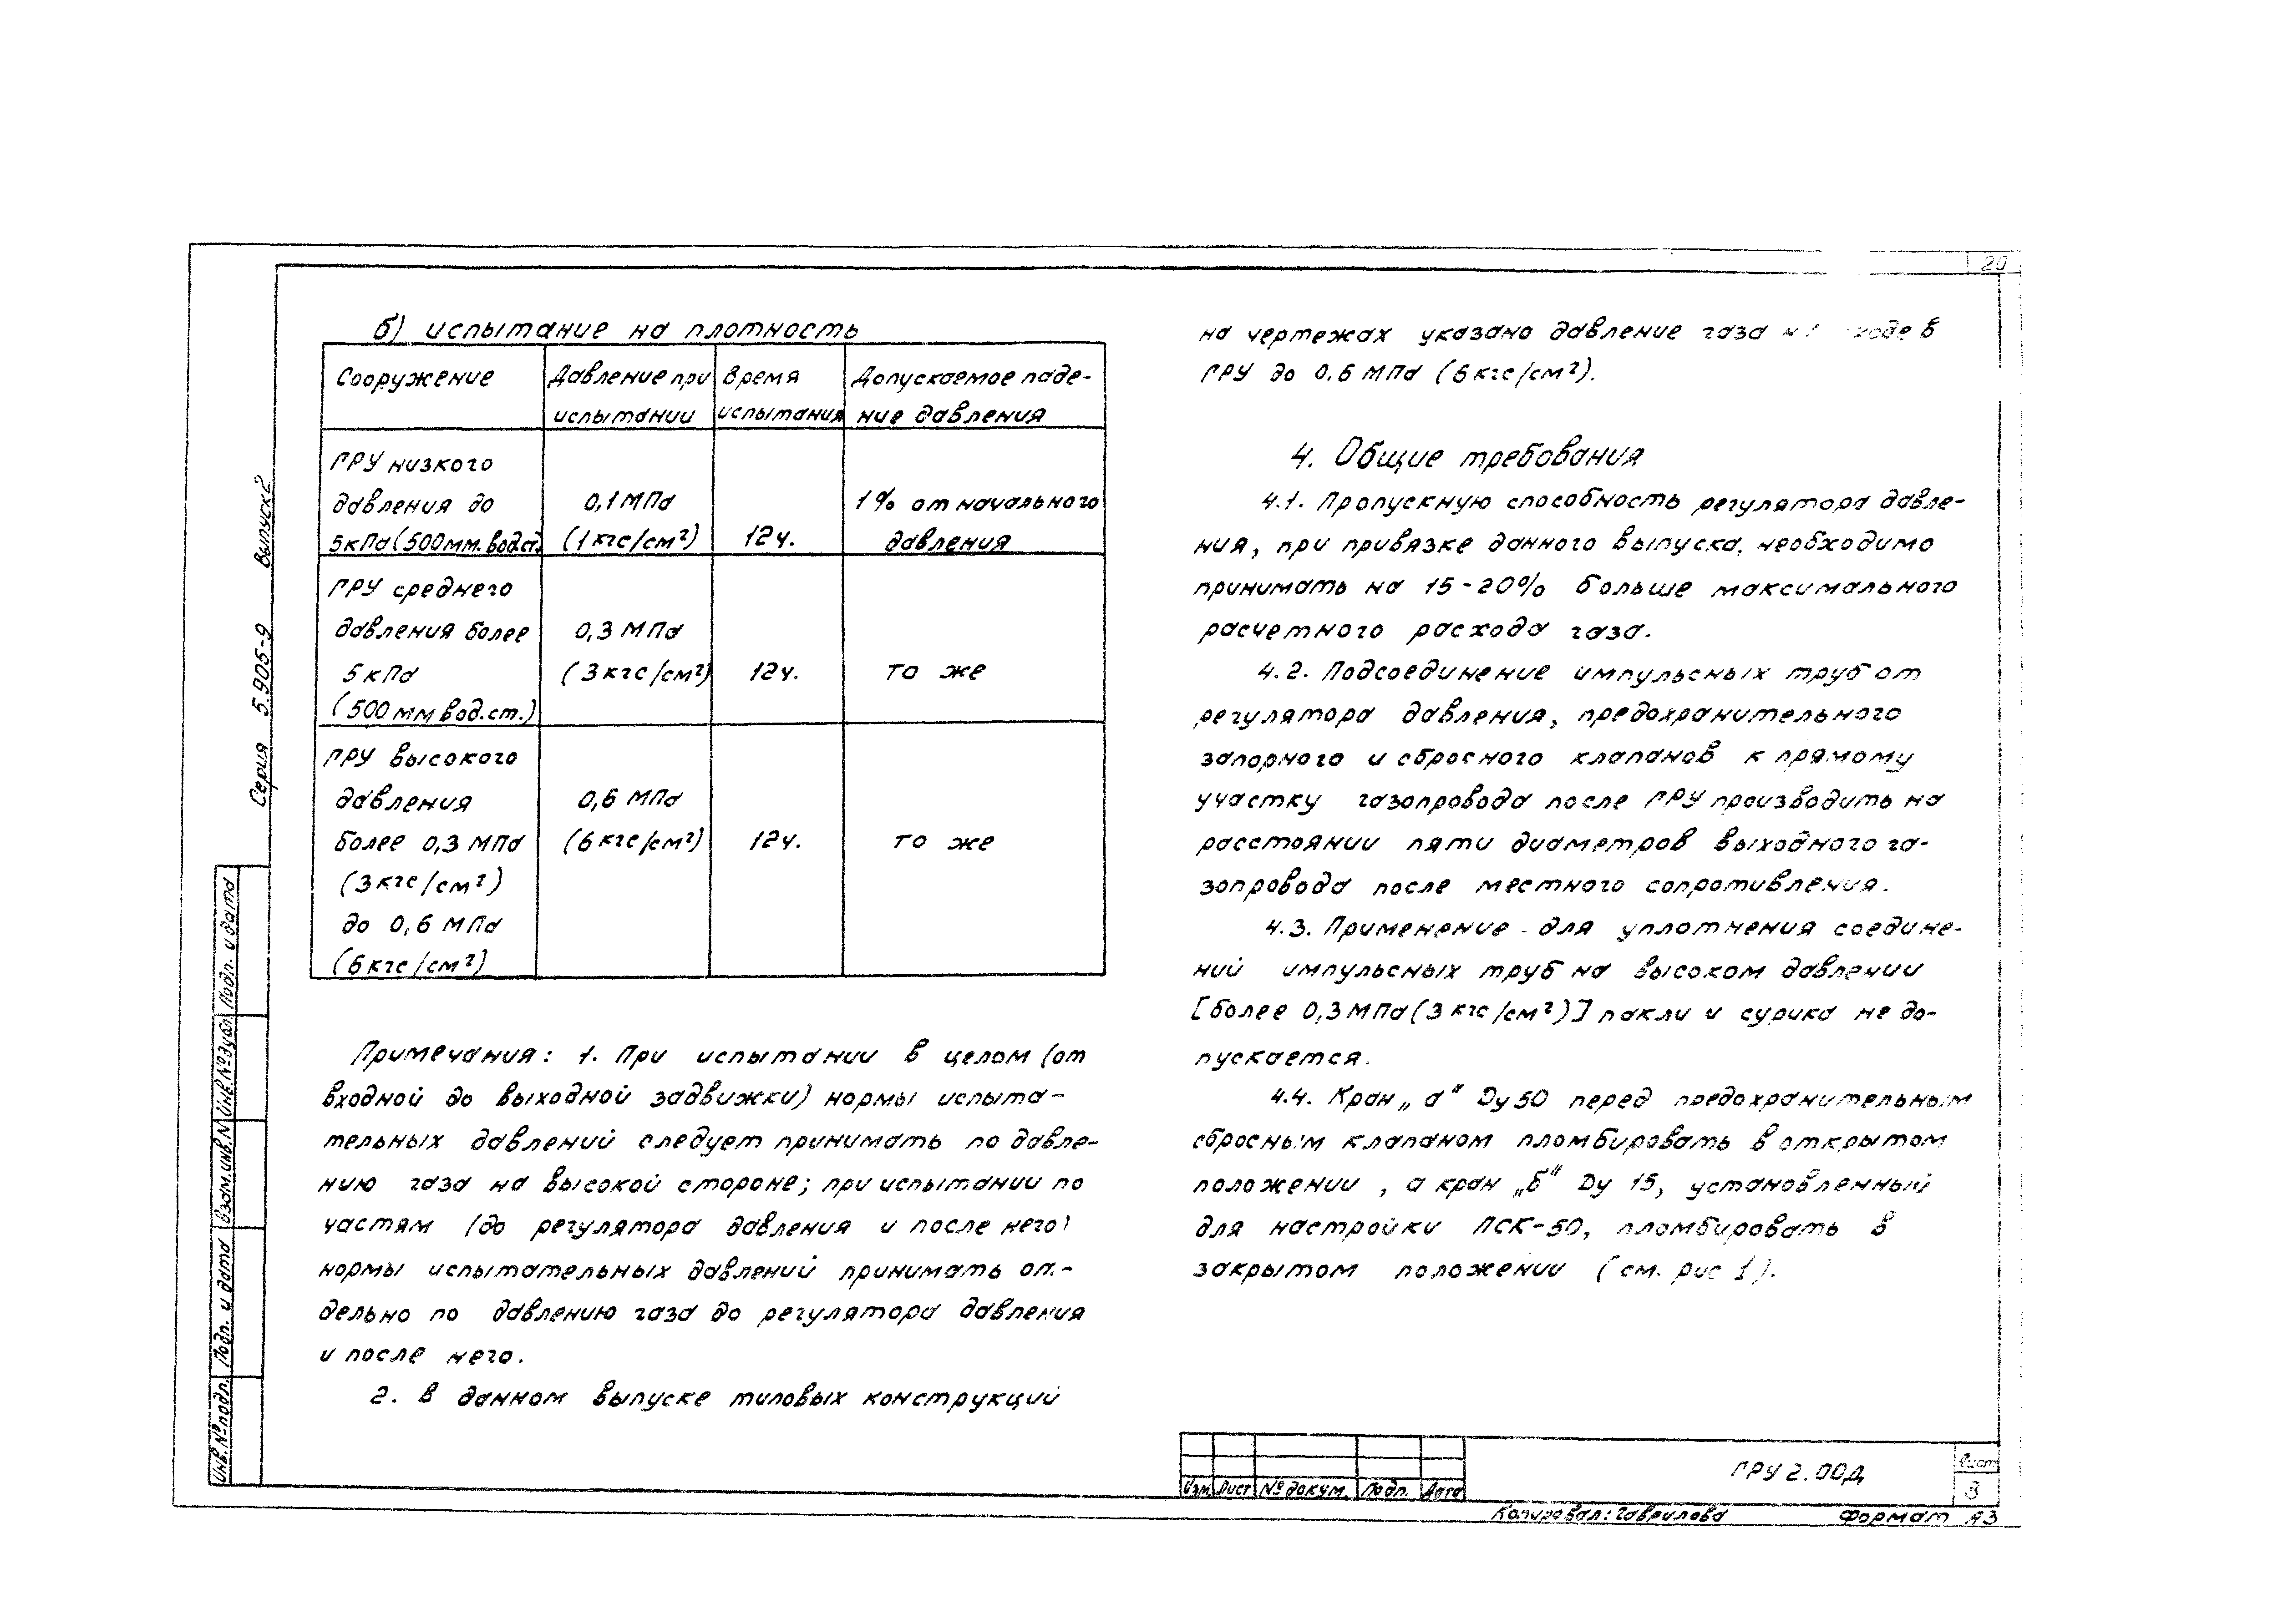 20
б) испытание на плотность
Сооружение | Давление при испытании | Время испытания | Допускаемое падение давления
ГРУ низкого
давления до
5кПа (500мм.вод.ст.)
0,1 МПа
(1 кгс/см²)
12ч.
1% от начального
давления
ГРУ среднего
давления более
5 кПа
(500 мм вод.ст.)
0,3 МПа
(3 кгс/см²)
12ч.
то же
ГРУ высокого
давления
более 0,3 МПа
(3 кгс/см²)
до 0,6 МПа
(6 кгс/см²)
0,6 МПа
(6 кгс/см²)
12ч.
то же
Примечания: 1. При испытании в целом (от
входной до выходной задвижки) нормы испыта-
тельных давлений следует принимать по давле-
нию газа на высокой стороне; при испытании по
частям (до регулятора давления и после него)
нормы испытательных давлений принимать от-
дельно по давлению газа до регулятора давления
и после него.
2. В данном выпуске типовых конструкций
на чертежах указано давление газа в
ГРУ до 0,6 МПа (6 кгс/см²).
4. Общие требования
4.1. Пропускную способность регулятора давле-
ния, при привязке данного выпуска, необходимо
принимать на 15-20% больше максимального
расчетного расхода газа.
4.2. Подсоединение импульсных труб от
регулятора давления, предохранительного
запорного и сбросного клапанов к прямому
участку газопровода после ГРУ производить на
расстоянии пяти диаметров выходного га-
зопровода после местного сопротивления.
4.3. Применение для уплотнения соедине-
ний импульсных труб на высоком давлении
[более 0,3 МПа (3 кгс/см²)] пакли и сурика не до-
пускается.
4.4. Кран „а“ Dу 50 перед предохранительным
сбросным клапаном пломбировать в открытом
положении, а кран „б“ Dу 15, установленный
для настройки ПСК-50, пломбировать в
закрытом положении (см. рис 1).
Серия 5.905-9 Выпуск 2
Инв.№ подл. Подп. и дата Взам.инв.№ Инв.№ дубл. Подп. и дата
Изм. Лист № докум. Подп. Дата
ГРУ 2.00Д
Лист
3
Копировал: Гаврилова
Формат А3